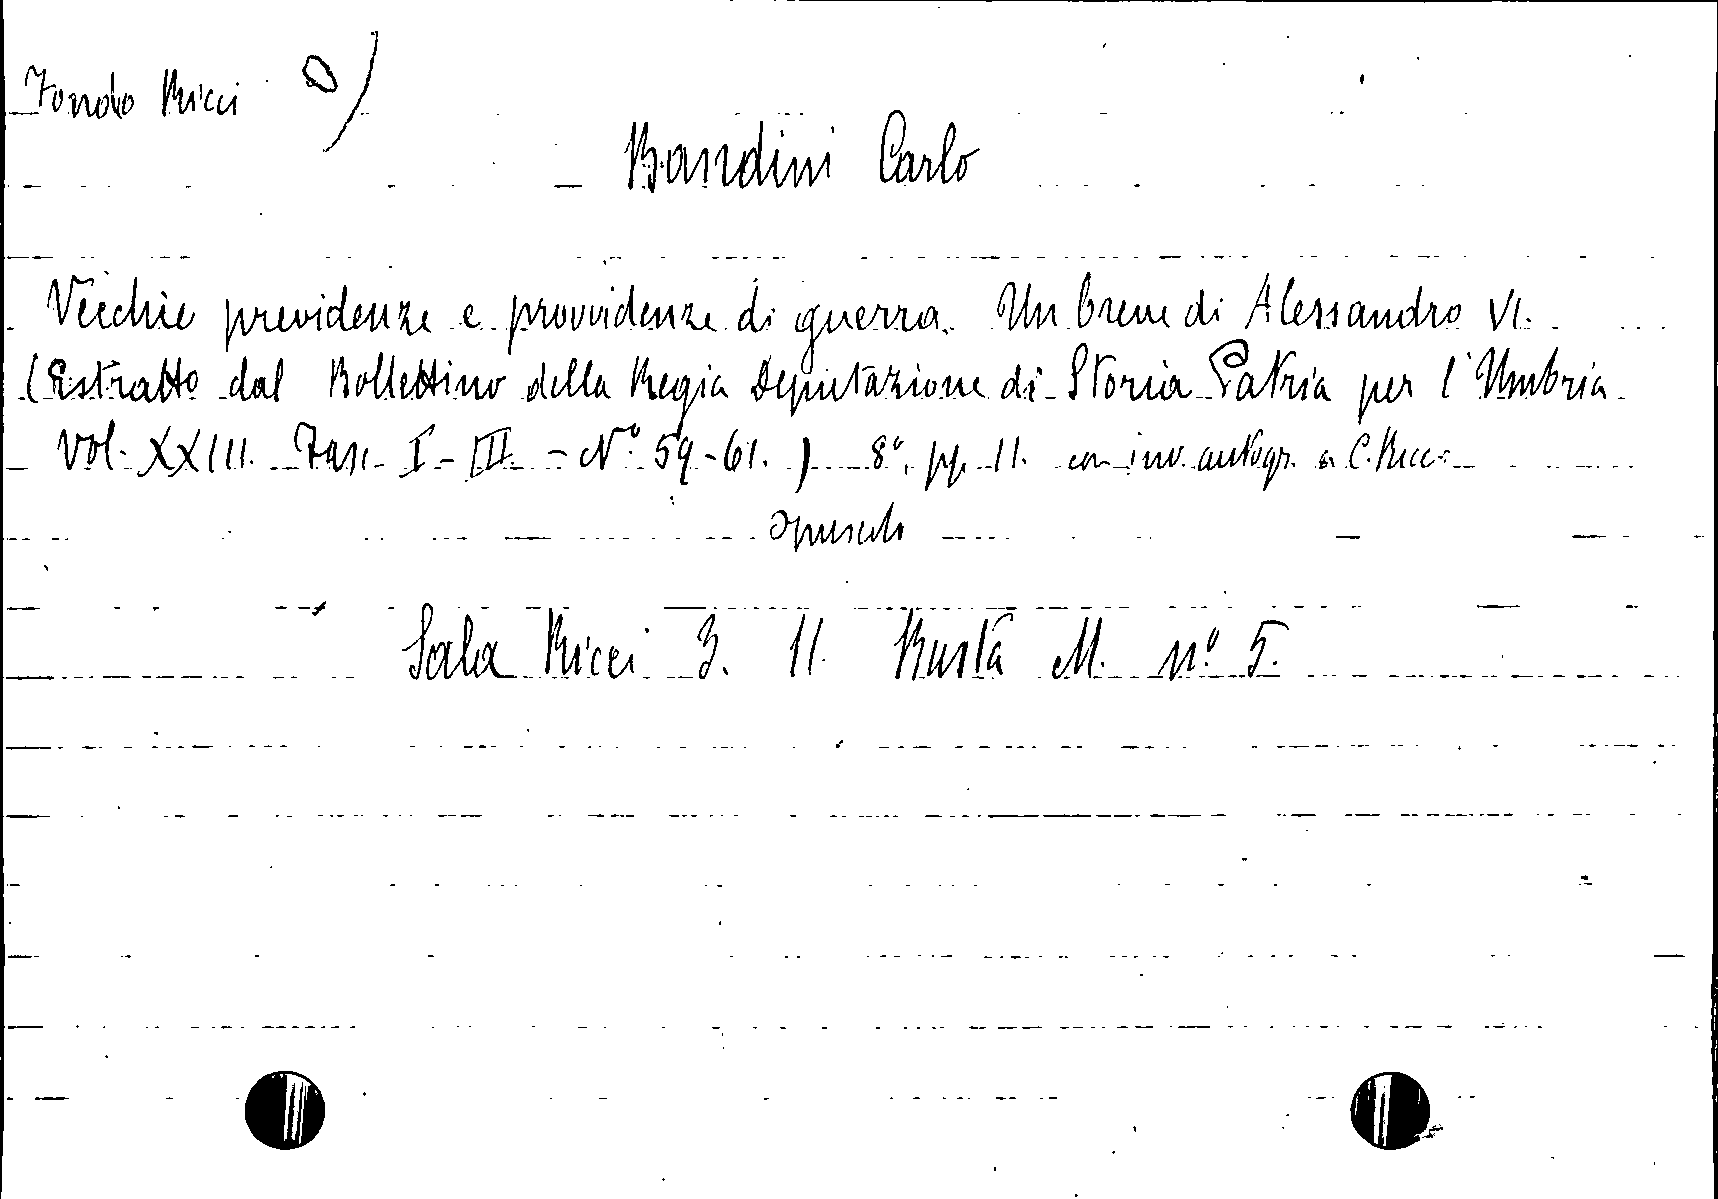 Fondo Ricci O)
Bandini Carlo
Vecchie previdenze e provvidenze di guerra. Un breve di Alessandro VI.
(Estratto dal Bollettino della Regia Deputazione di Storia Patria per l'Umbria
Vol. XXIII. Fasc. I-III. - N° 59-61.) 8°, pp. 11. con inv. autogr. a C. Ricci
opuscolo
Sala Ricci 3. 11. Busta M. n° 5.